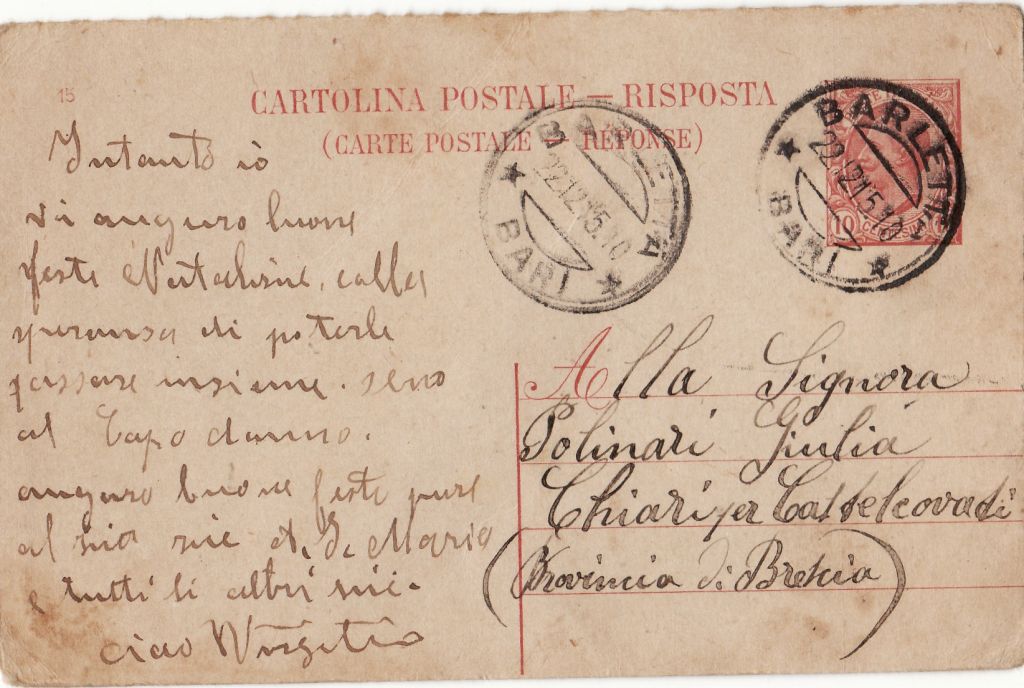 15
CARTOLINA POSTALE — RISPOSTA
(CARTE POSTALE RÉPONSE)
BARLETTA
22.12.15.10
BARI
BARLETTA
22.12.15.10
BARI
10
Intanto io
vi auguro buone
feste Natalizie, colla
speranza di poterle
passare insieme. seno
al Capo danno.
auguro buone feste pure
al mia zie Maria
e tutti li altri
ciao
Alla Signora
Polinari Giulia
Chiari per Castelcovati
(Provincia di Brescia)